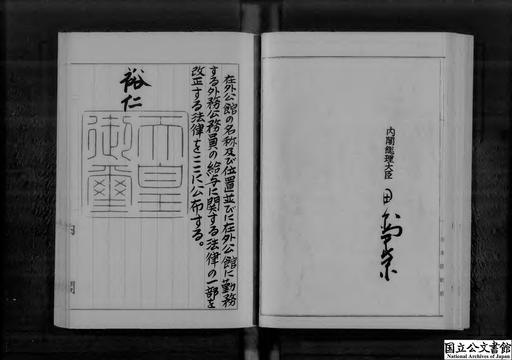 内閣総理大臣
田中角榮
在外公館の名称及び位置並びに在外公館に勤務
する外務公務員の給与に関する法律の一部を
改正する法律をここに公布する。
裕仁
天皇
御璽
国立公文書館
National Archives of Japan